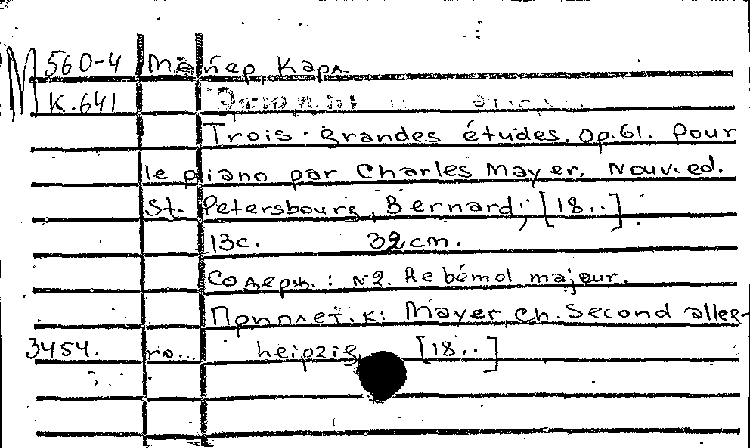 М 560-4 Майер, Карл
К.641
Trois grandes études, op.61. Pour
le piano par Charles Mayer. Nouv. ed.
St. Petersbourg, Bernard, [18..].
13с. 32 cm.
Содерж.: №2. Re bémol majeur.
Приплет. к: Mayer Ch. Second alleg-
3454. ro... Leipzig [18..]